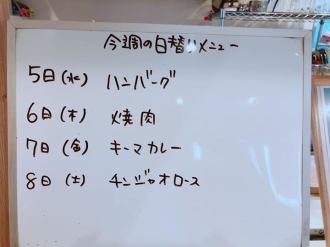 今週の日替りメニュー
5日(水) ハンバーグ
6日(木) 焼肉
7日(金) キーマカレー
8日(土) チンジャオロース